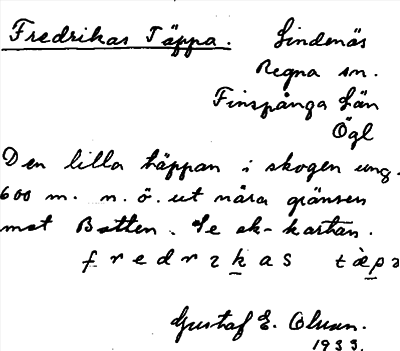 Fredrikas Täppa. Lindenäs
Regna sn.
Finspånga län
Ögl
Den lilla täppan i skogen ung.
600 m. n. ö. ut nära gränsen
mot Botten. Se ek-kartan.
fredrikas tàpa
Gustaf E. Olsson.
1933.